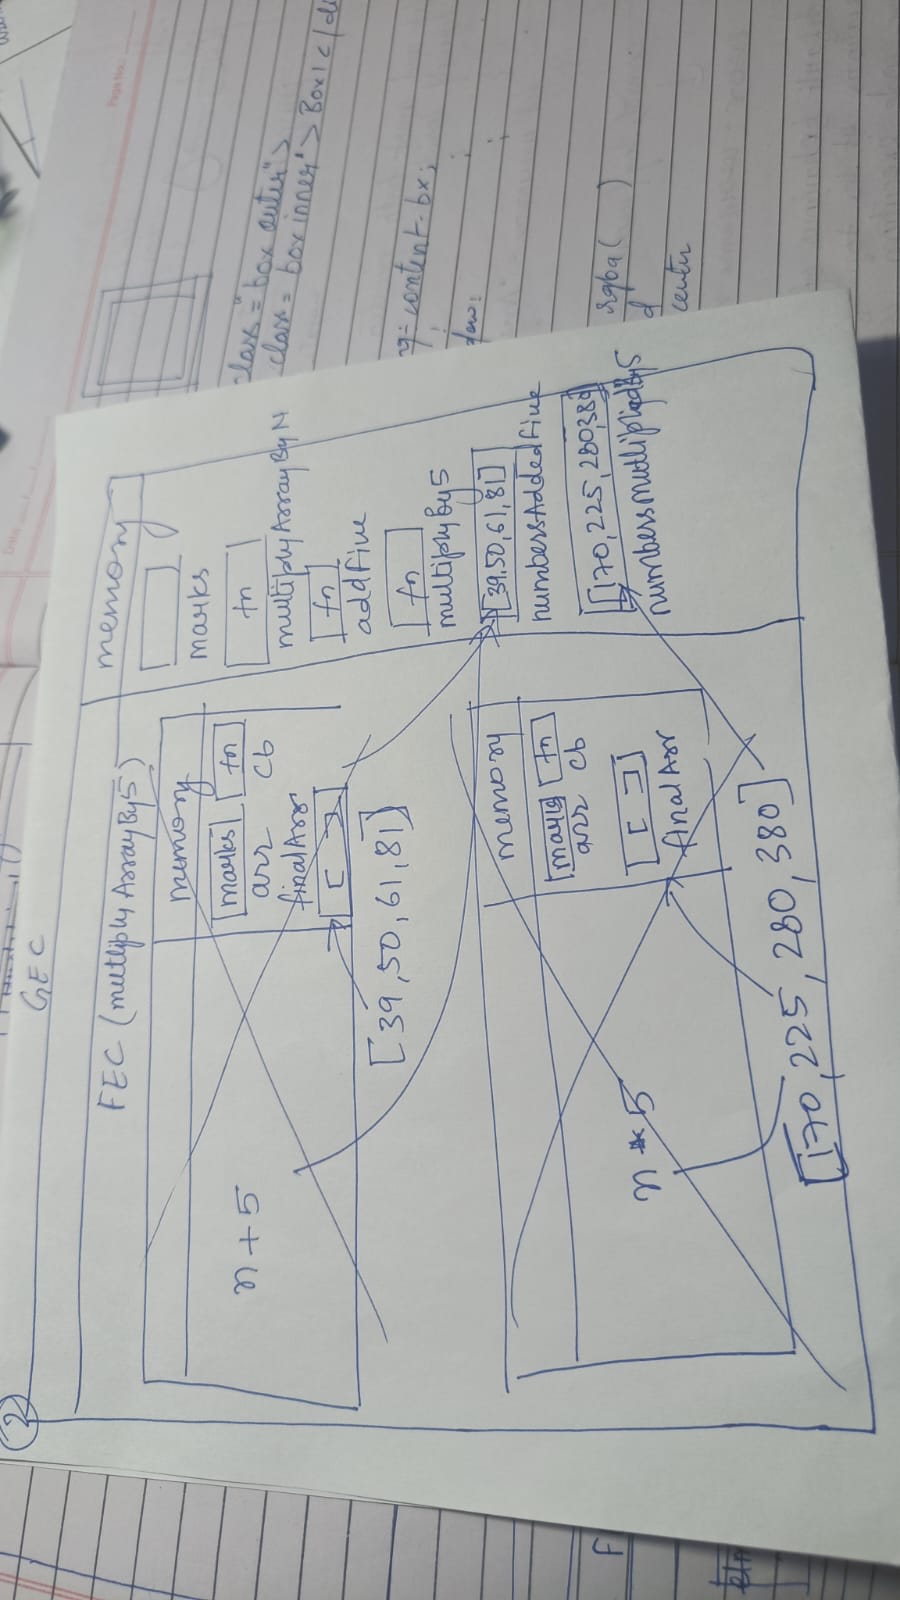 2
GEC
FEC (mutliply ArrayBy5)
memory
marks
fn
arr
cb
finalArr
[ ]
n + 5
[39, 50, 61, 81]
memory
fn
arr
cb
[ ]
finalArr
n * 5
[170, 225, 280, 380]
memory
marks
fn
multiplyArrayByN
fn
addfive
fn
multiplyBy5
[39,50,61,81]
numbersAddedfive
[170,225,280,380]
class="box outer">
class="box inner"> Box1</di
content-bx;
rgba( )
center
Page No.